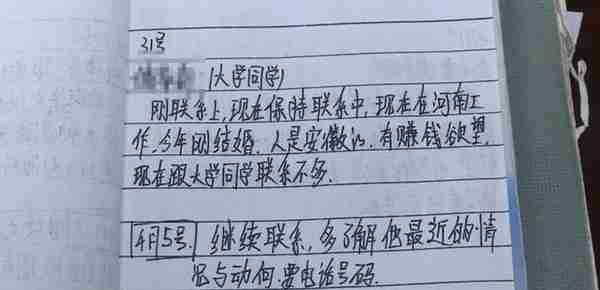 31号
(大学同学)
刚联系上,现在保持联系中,现在在河南工
作,今年刚结婚.人是安徽的.有赚钱欲望.
现在跟大学同学联系不多.
4月5号. 继续联系,多了解他最近的情
况与动向.要电话号码.